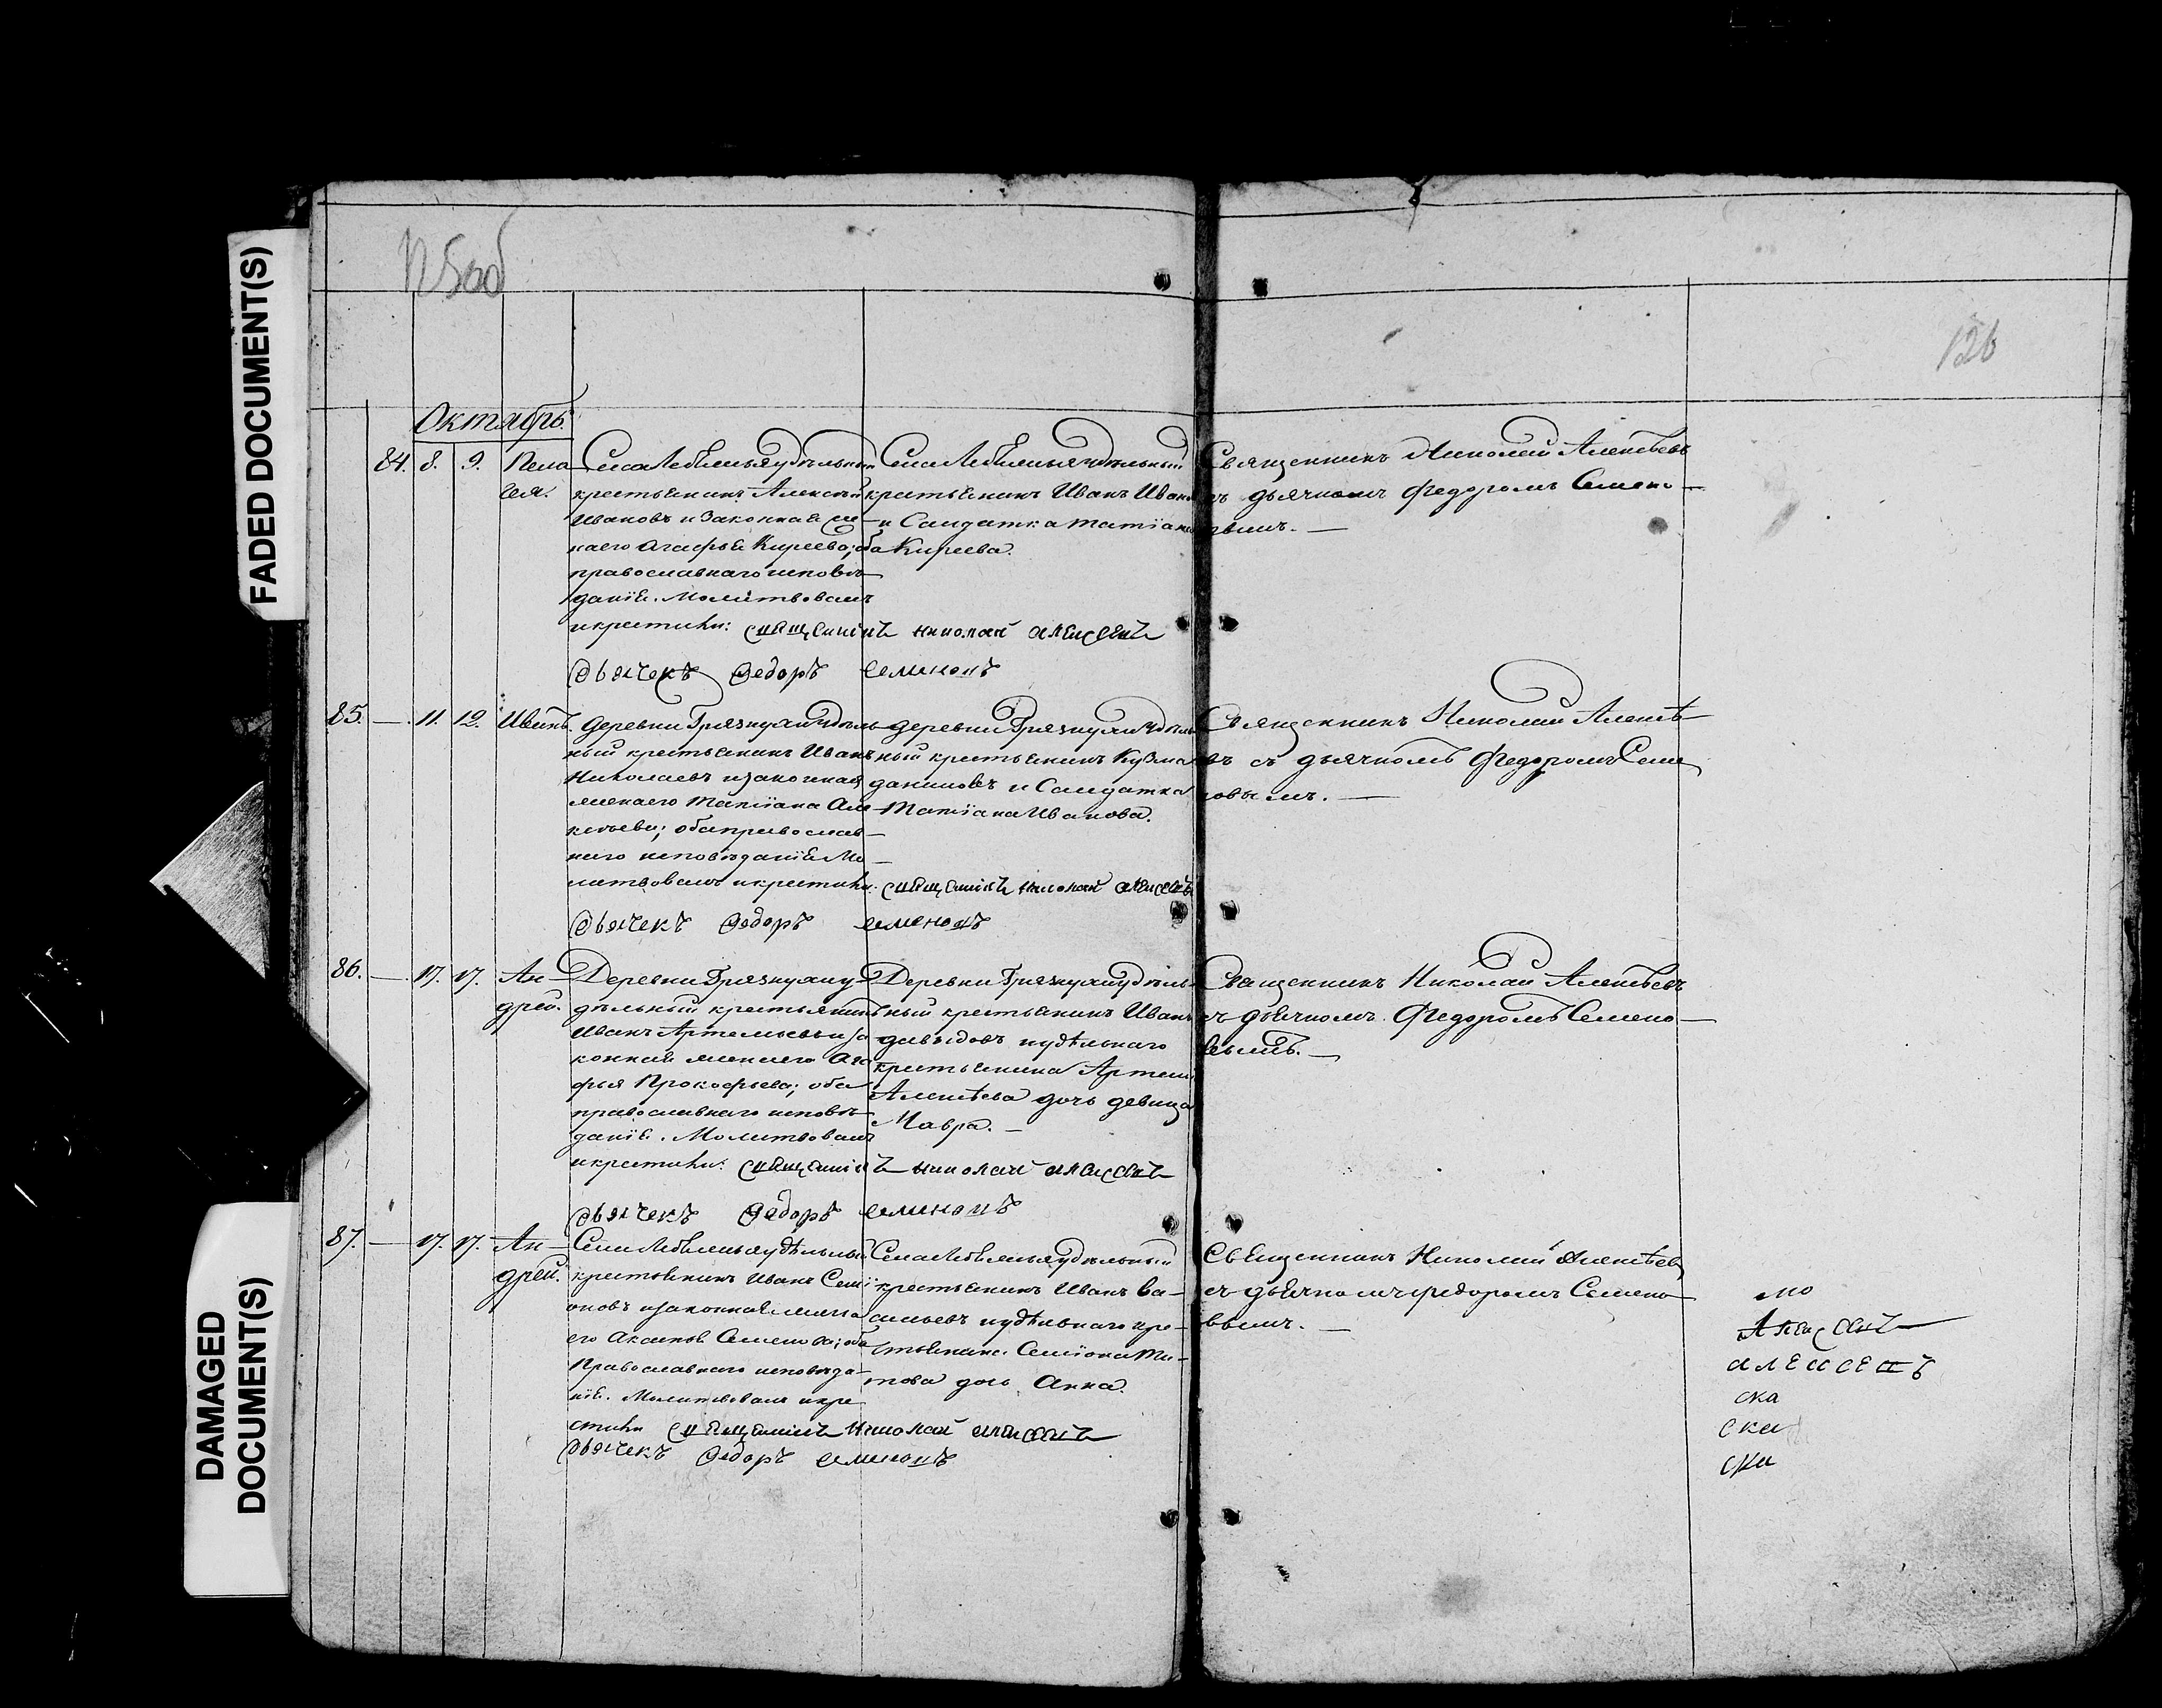 FADED DOCUMENT(S)
DAMAGED
DOCUMENT(S)
126
Октябрь.
84. 8. 9. Пела
гея.
Села Лебяжья удѣльный
крестьянинъ Алексѣй
Ивановъ и законная же
на его Агафья Киреева; оба
православнаго исповѣ
данія. Молитвовалъ
и крестилъ: священникъ николай алексеевъ
дьячекъ Федоръ семеновъ
Села Лебяжья удѣльный
крестьянинъ Иванъ Ивановъ
и Салдатка Татіана
Киреева.
Священникъ Николай Алексѣевъ
съ дьячкомъ Федоромъ Семено
вымъ.
85. 11. 12. Иванъ.
деревни Грязнухи удѣль
ный крестьянинъ Иванъ
Николаевъ и законная
жена его Татіана Але
ксѣева; оба православ
наго исповѣданія Мо
литвовалъ и крестилъ: священникъ николай алексеевъ
дьячекъ Федоръ семеновъ
деревни Грязнухи удѣль
ный крестьянинъ Кузма
Даниловъ и Салдатка
Татіана Иванова.
Священникъ Николай Алексѣ
въ съ дьячкомъ Федоромъ Семе
новымъ.
86. 17. 17. Ан
дрей.
Деревни Грязнухи у
дѣльный крестьянинъ
Иванъ Артемьевъ и за
конная жена его Ага
фья Прокофьева; оба
православнаго исповѣ
данія. Молитвовалъ
и крестилъ: священникъ николай алексеевъ
дьячекъ Федоръ семеновъ
Деревни Грязнухи удѣль
ный крестьянинъ Иванъ
Давыдовъ и удѣльнаго
крестьянина Артемья
Алексѣева дочь девица
Мавра.
Священникъ Николай Алексѣевъ
съ дьячкомъ Федоромъ Семено
вымъ.
87. 17. 17. Ан
дрей.
Села Лебяжья удѣльный
крестьянинъ Иванъ Семі
оновъ и законная жена
его Аксинья Семенова; оба
Православнаго исповѣда
нія. Молитвовалъ и кре
стилъ священникъ николай алексеевъ
дьячекъ Федоръ семеновъ
Села Лебяжья удѣльный
крестьянинъ Иванъ Ва
сильевъ и удѣльнаго кре
стьянина Семіона Ти
това дочь Анна.
Священникъ Николай Алексѣев
съ дьячкомъ федоромъ Семено
вымъ.
мо
Алексеевъ
алексеевъ
ска
ска
ска